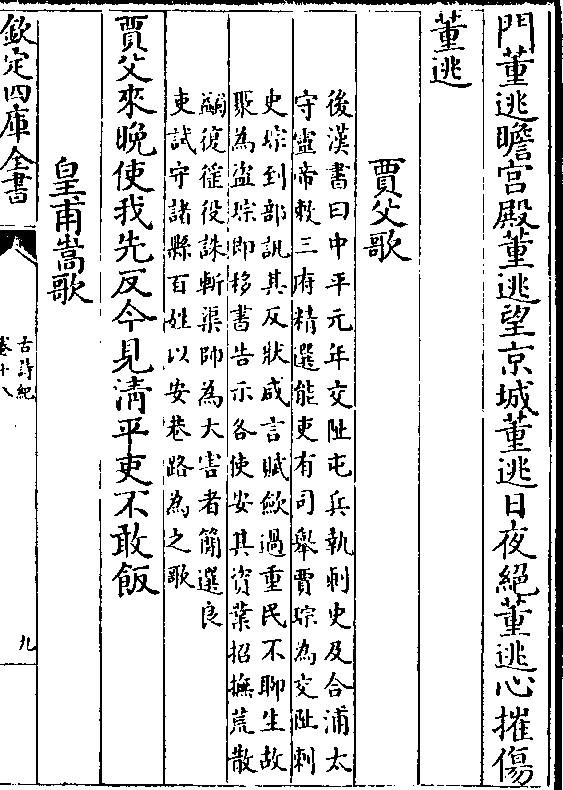 門董逃瞻宫殿董逃望京城董逃日夜絕董逃心摧傷
董逃
賈父歌
後漢書曰中平元年交阯屯兵執刺史及合浦太
守靈帝敕三府精選能吏有司舉賈琮為交阯刺
史琮到部訊其反狀咸言賦歛過重民不聊生故
聚為盗琮即移書告示各使安其資業招撫荒散
蠲復徭役誅斬渠帥為大害者簡選良
吏試守諸縣百姓以安巷路為之歌
賈父來晚使我先反今見清平吏不敢飯
皇甫嵩歌
欽定四庫全書
古詩紀
卷十八
九